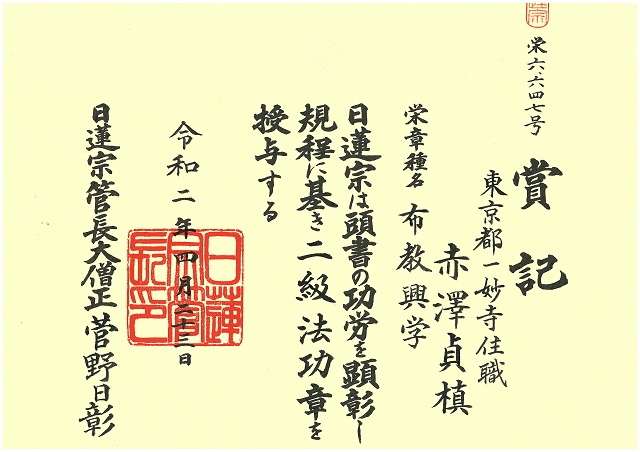 栄六、六四七号
賞記
東京都一妙寺住職
赤澤貞槙
栄章種名 布教興学
日蓮宗は頭書の功労を顕彰し
規程に基き二級法功章を
授与する
令和二年四月二十三日
日蓮宗管長大僧正 菅野日彰
日蓮
宗管
長印